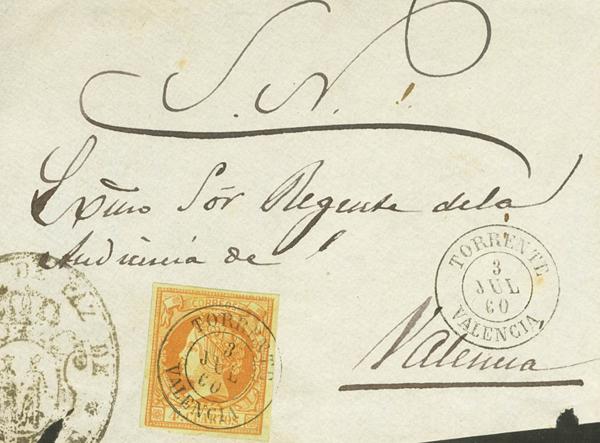 S. N.
Exmo Sór Regente de la
Audiencia de
Valencia
TORRENTE
3
JUL
60
VALENCIA
CORREOS
TORRENTE
3
JUL
60
VALENCIA